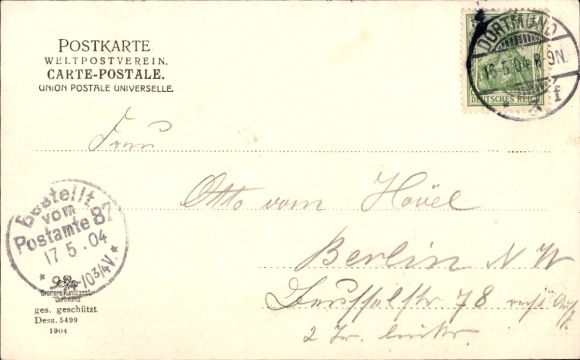 POSTKARTE
WELTPOSTVEREIN.
CARTE-POSTALE.
UNION POSTALE UNIVERSELLE.
DORTMUND
16.5.04.8-9N.
* 3 f
DEUTSCHES REICH
Frau
Otto vom Hövel
Berlin N W
78
2 Tr. links
Bestellt
vom
Postamte 87
17.5.04
* /03/4V. *
Dortmund
ges. geschützt.
Dess. 5499
1904